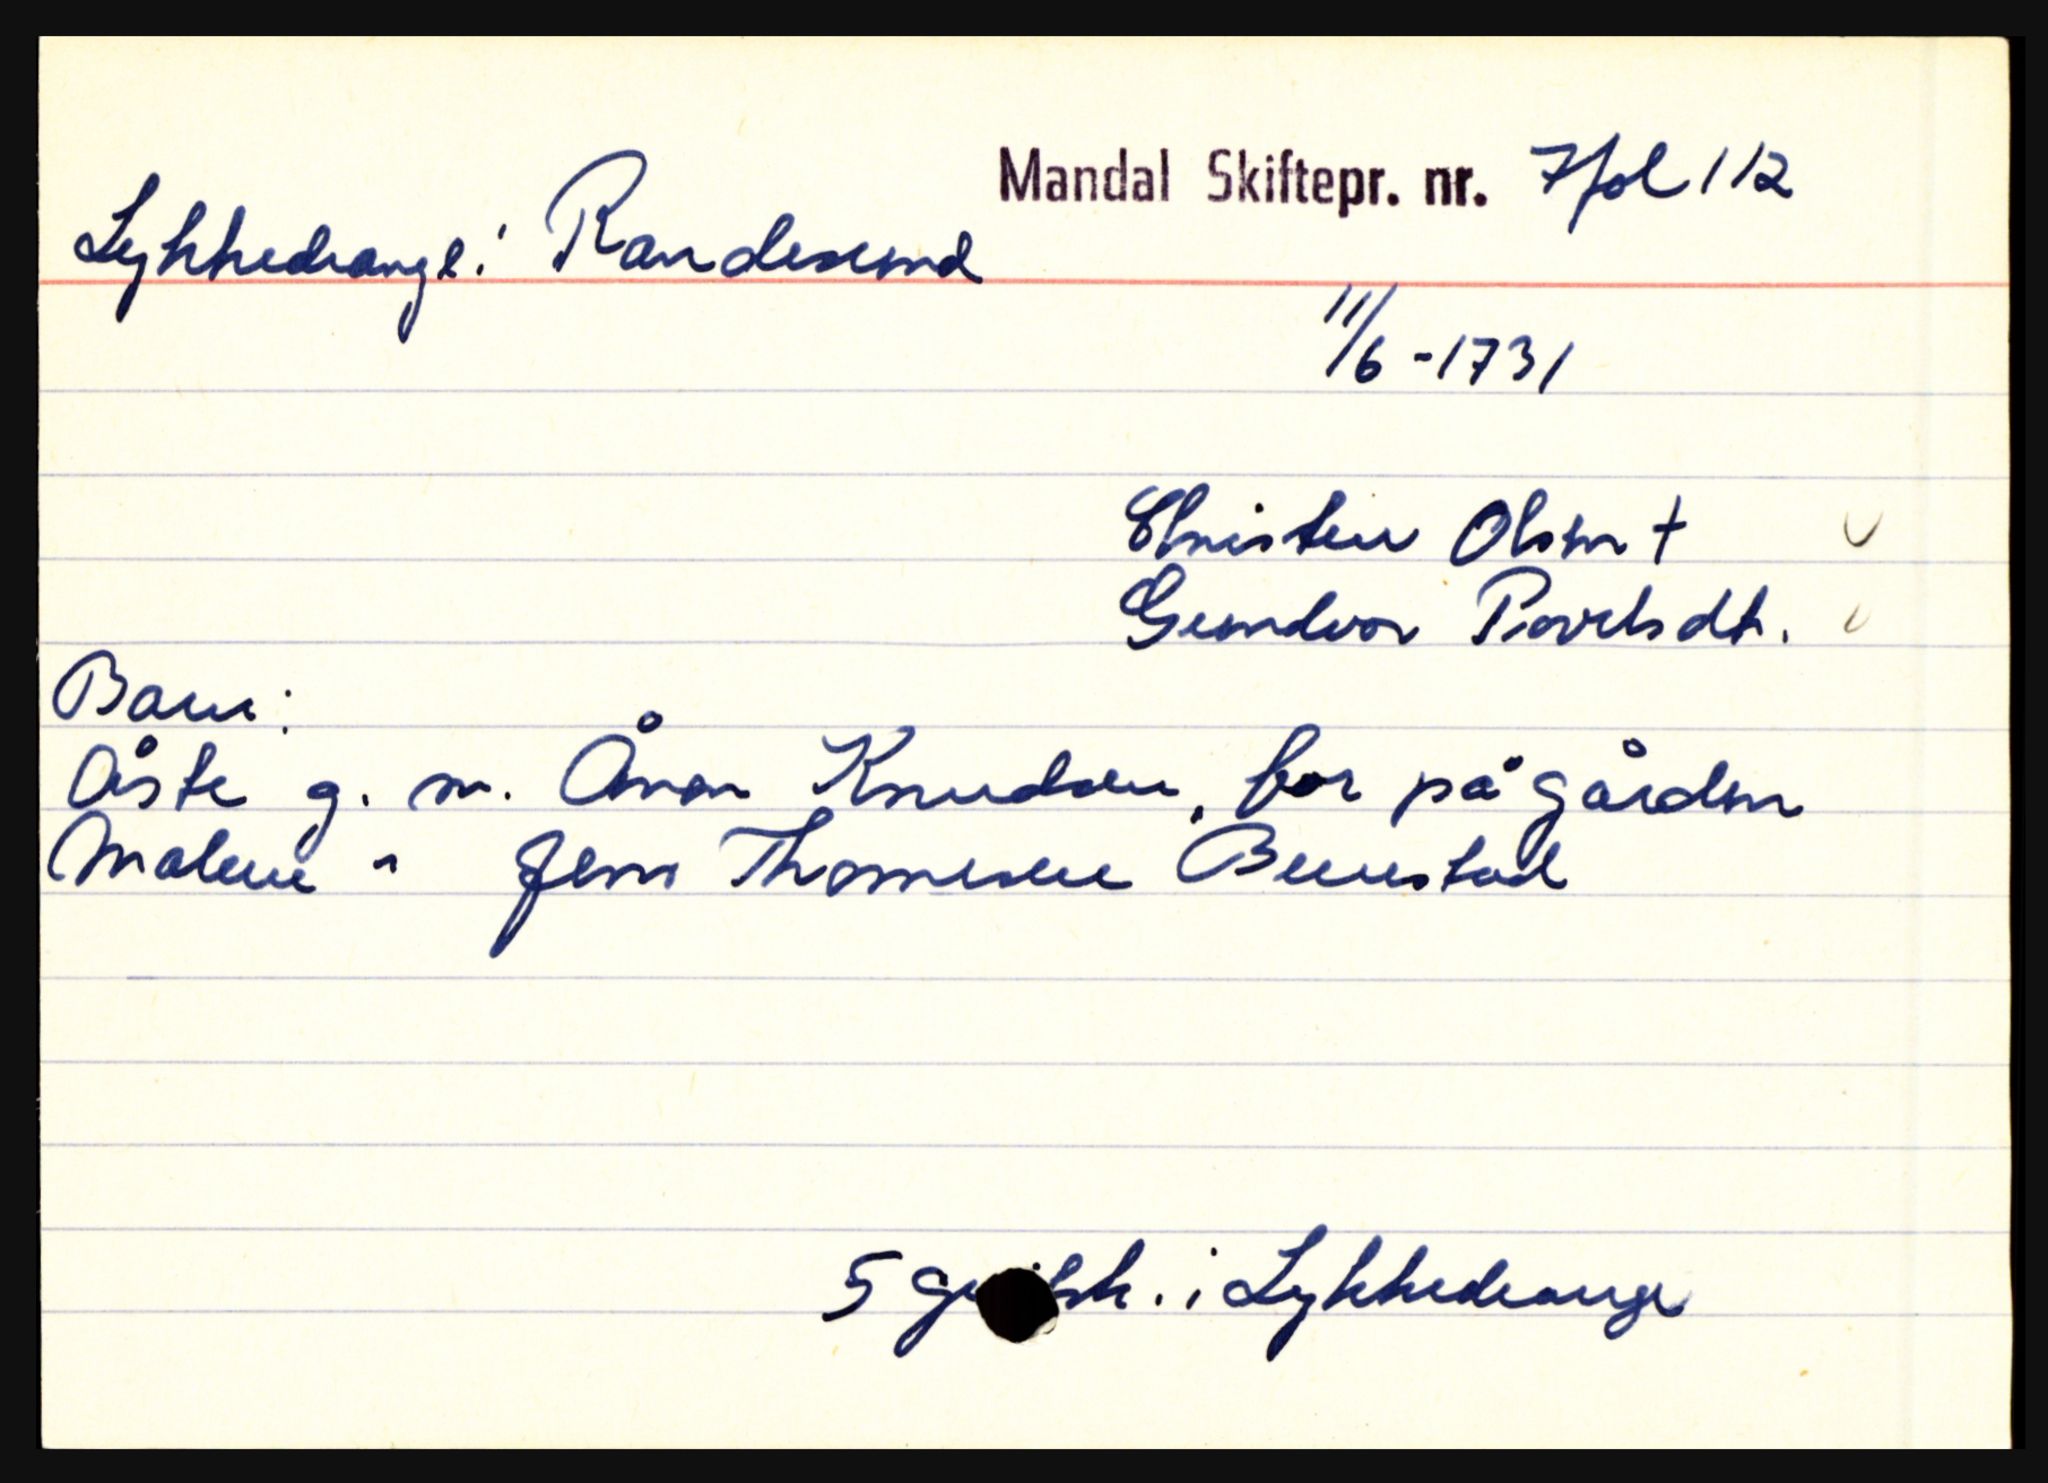 Mandal Skiftepr. nr. 7 fol 112
Lykkedrange: Randesund
11/6 - 1731
Christen Olsen +
Gundvor Povelsdt.
Barn:
Åste g. m. Ånon Knudsen, bor på gården
Malene " Jens Thomesen Benestad
5 gr. i Lykkedrange